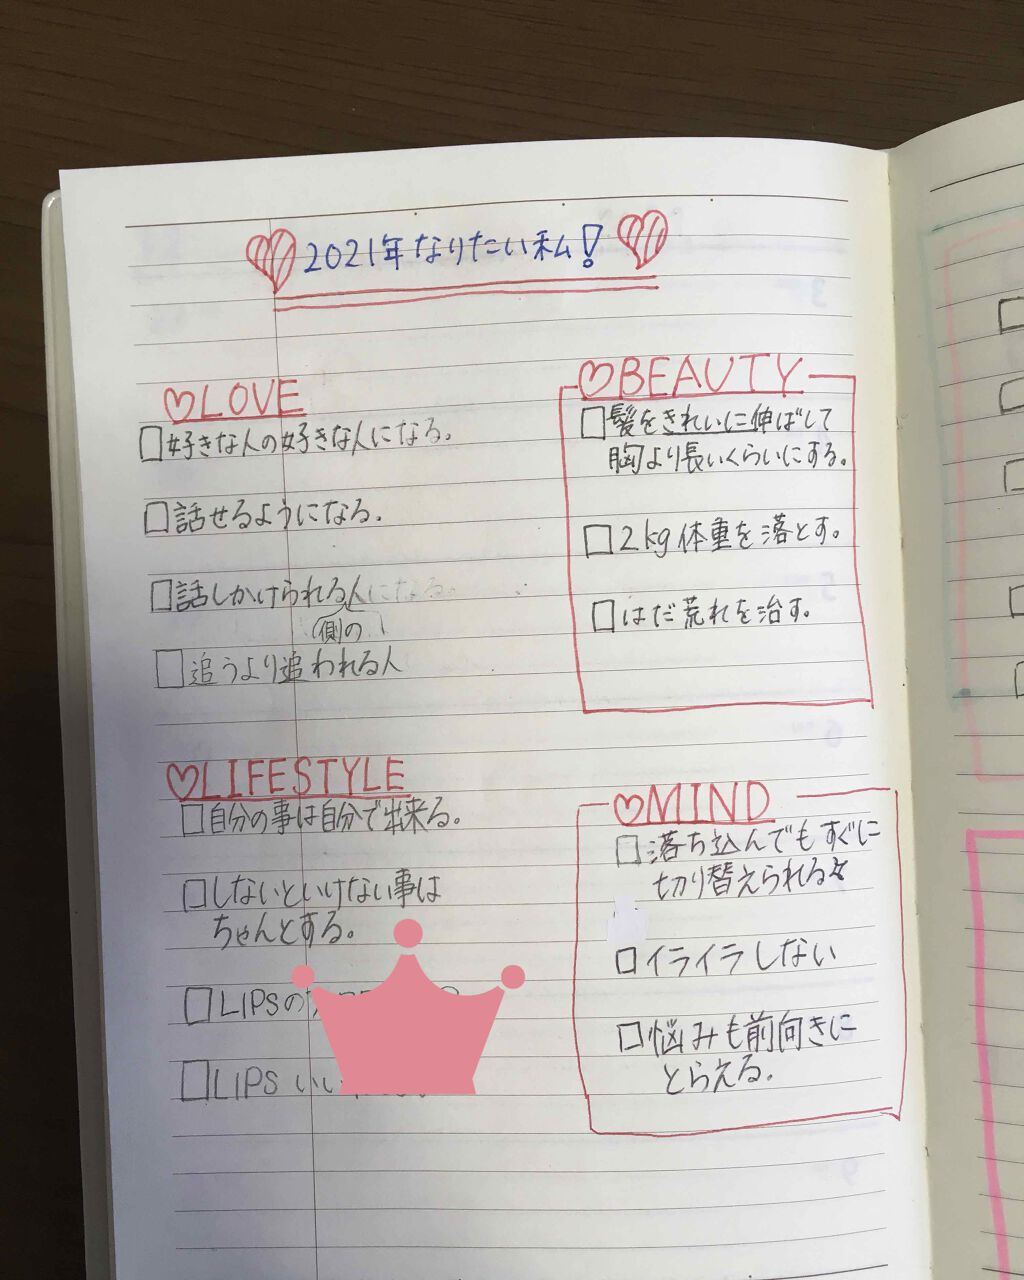 2021年なりたい私!
♡LOVE
□好きな人の好きな人になる。
□話せるようになる。
□話しかけられる人になる。
(側の
□追うより追われる人
♡BEAUTY
□髪をきれいに伸ばして
胸より長いくらいにする。
□2kg体重を落とす。
□はだ荒れを治す。
♡LIFESTYLE
□自分の事は自分で出来る。
□しないといけない事は
ちゃんとする。
□LIPSの
□LIPS いい
♡MIND
□落ち込んでもすぐに
切り替えられる
□イライラしない
□悩みも前向きに
とらえる。